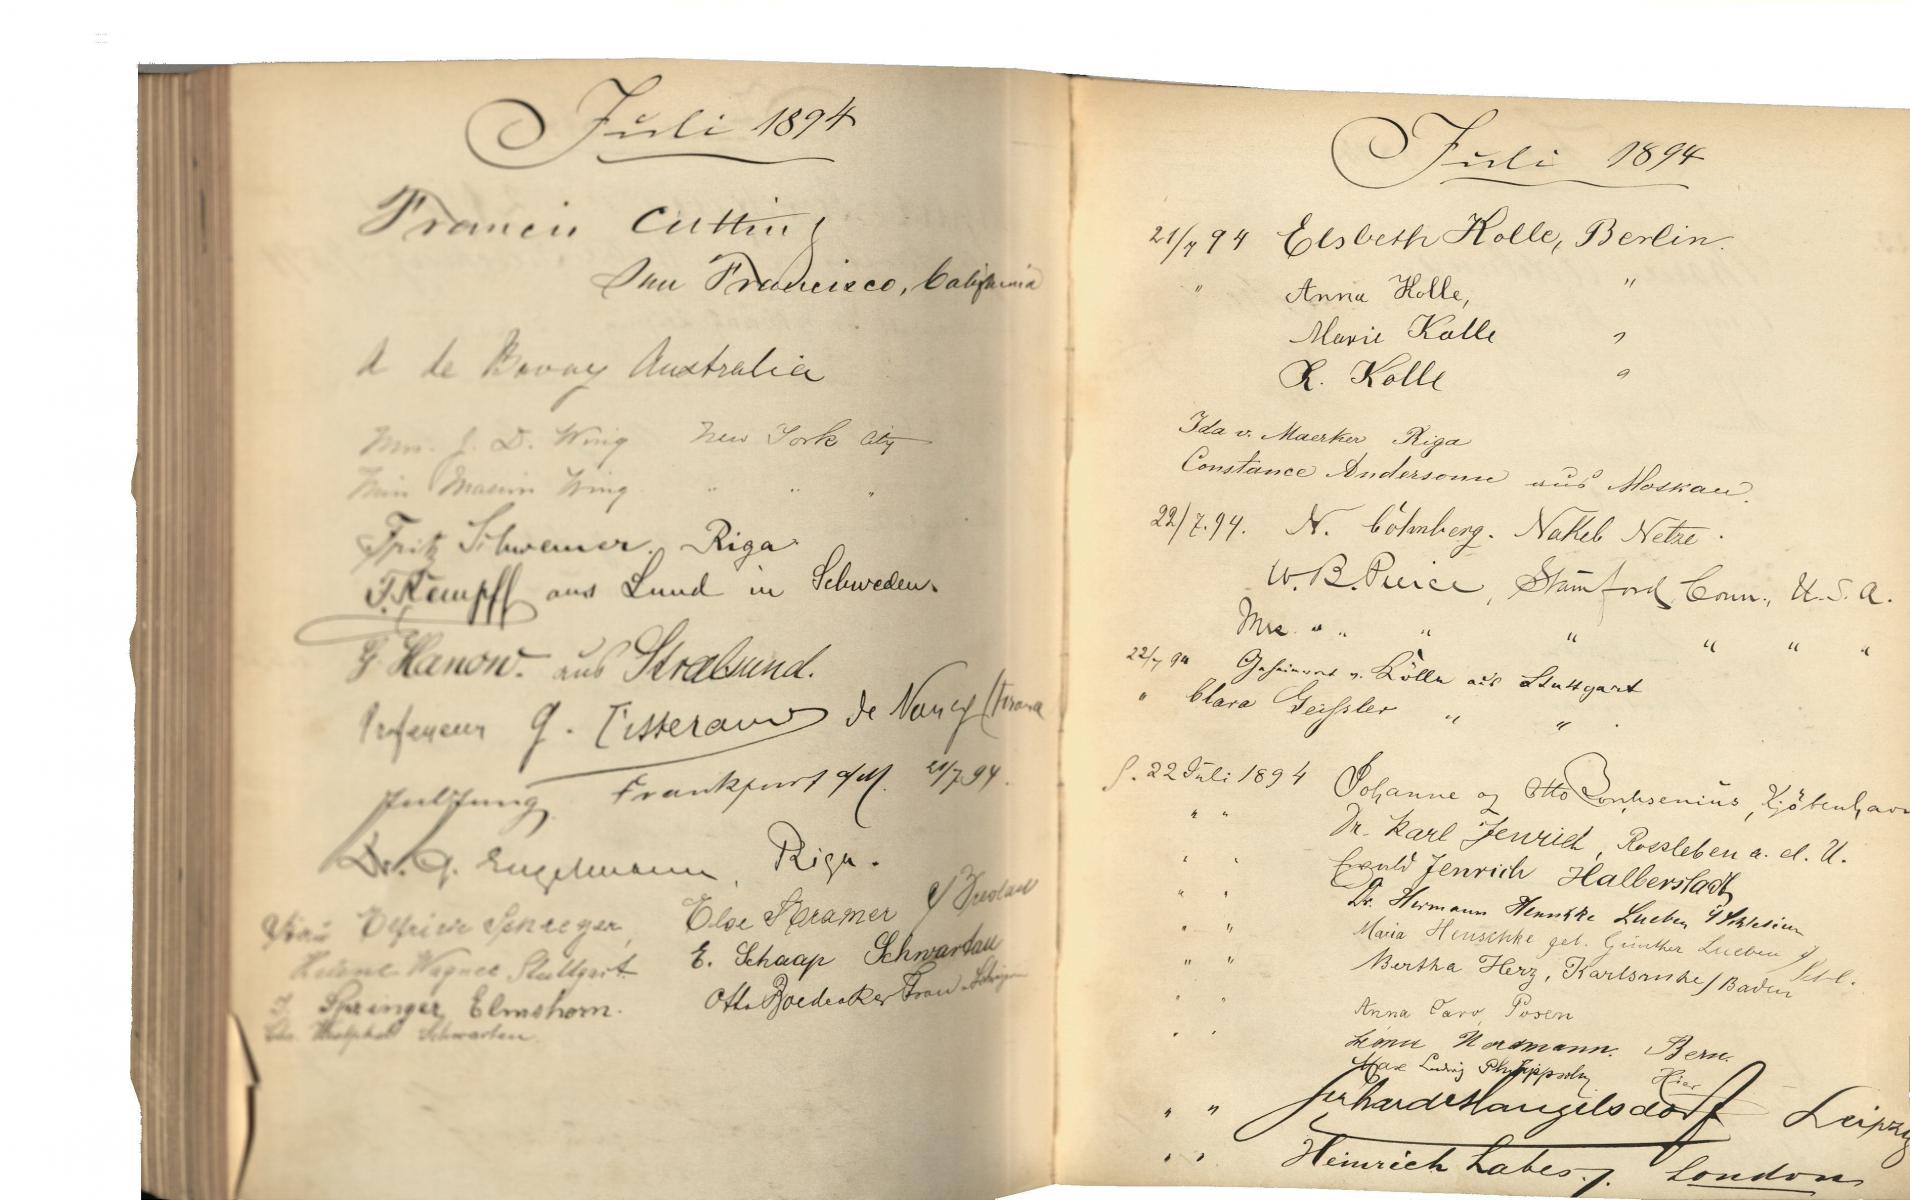 Juli 1894
Francis Cutting
San Francisco, California
A de Bavay Australia
Mrs. J. D. Wing New York City
Miss Marion Wing " " "
Fritz Schwemer. Riga
Kempff aus Lund in Schweden.
Hanow. aus Stralsund.
Professeur G. Tisserand de Nancy (France
Frankfurt a/M. 21/7 94.
Dr. G. Engelmann, Riga.
Frau Elfriede Springer, Else Kramer
Helene Wagner Stuttgart E. Schaap Schwartau
Springer, Elmshorn. Otto Boedeker
Westphal Schwartau
Juli 1894
21/7 94 Elsbeth Kolle, Berlin.
" Anna Kolle, "
Marie Kolle "
R. Kolle "
Ida v. Maerker Riga
Constance Andersonn aus Moskau.
22/7.94. N. Nakel Netze.
W. B. Pierce, Stamford, Conn., U.S.A.
Mrs " " " " " " "
22/7 94 Geheimrat v. Kölle aus Stuttgart
" Clara Geißler " "
d. 22 Juli 1894 Johanne og Otto Kjöbenhavn
" " Dr. Karl Jenrich, Rossleben a. d. U.
" " Ewald Jenrich Halberstadt
" " Dr. Hermann Henschke Lueben i/Schlesien
" " Maria Henschke geb. Günther Lueben i/Schl.
" " Bertha Herz, Karlsruhe/Baden
" " Anna Caro, Posen
" " Nordmann. Bern.
Max Ludwig Philippsohn Hier
" " Gerhard Mangelsdorf Leipzig
" " Heinrich Labes. London